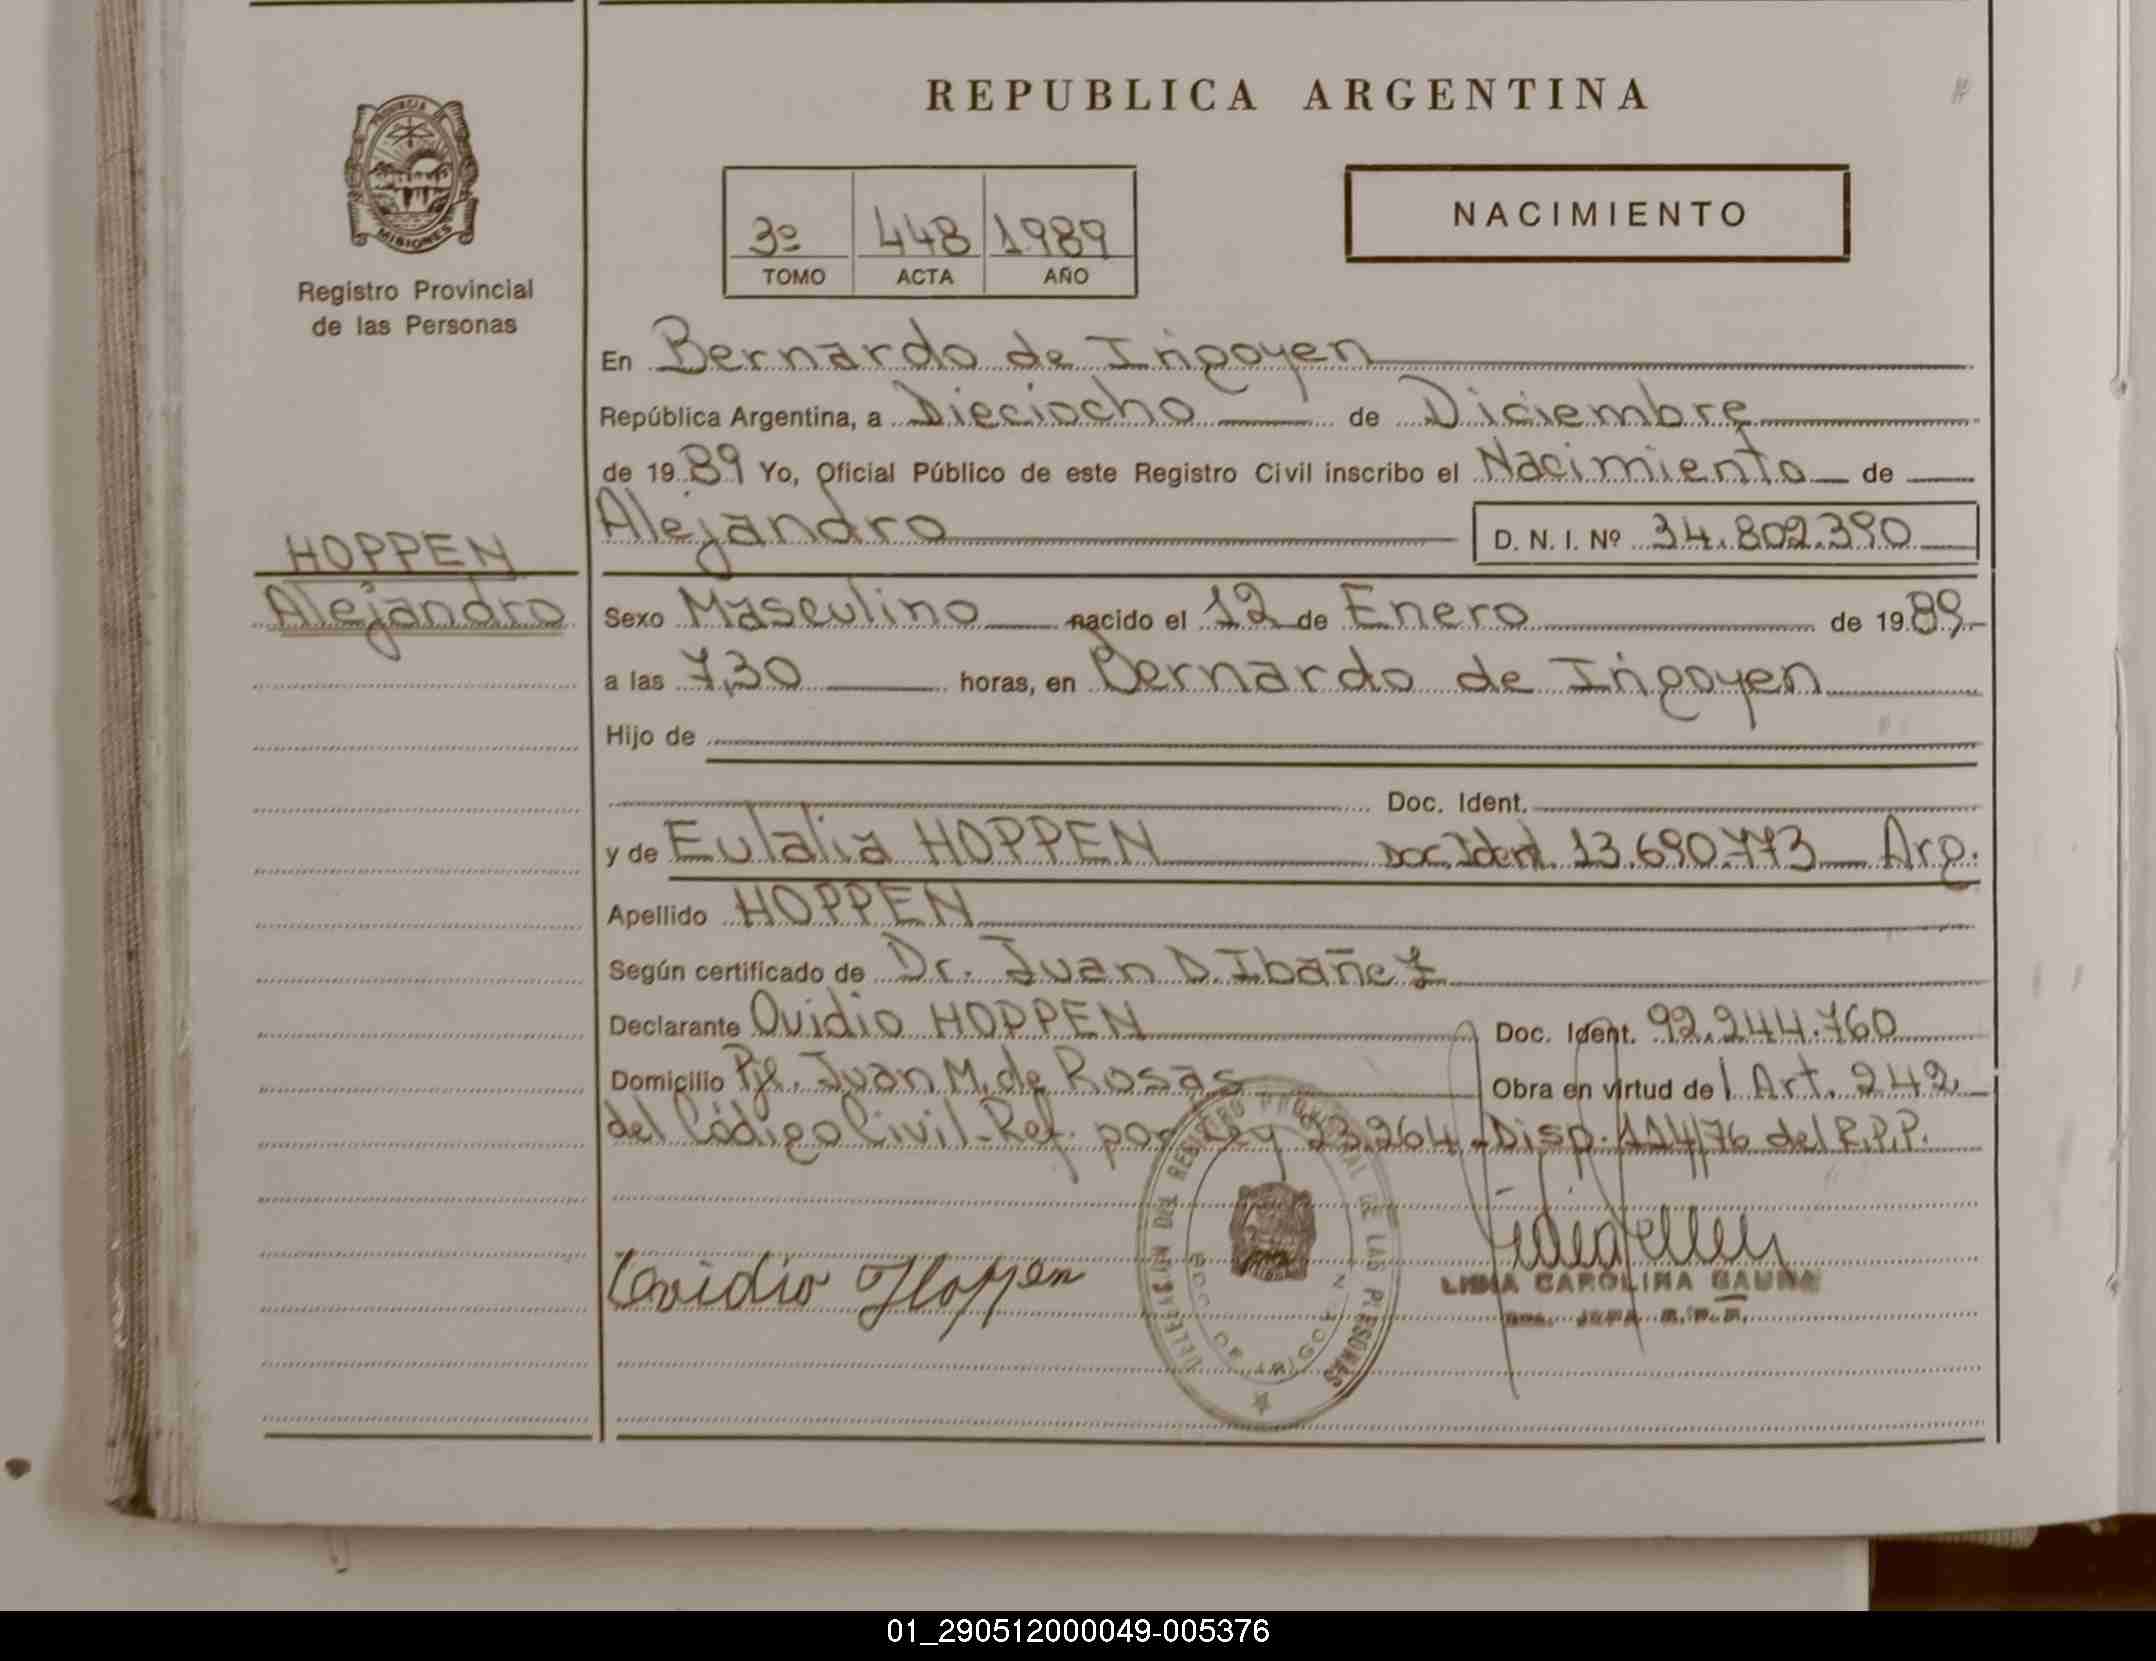 REPUBLICA ARGENTINA
PROVINCIA DE
MISIONES
Registro Provincial
de las Personas
NACIMIENTO
3º 448 1989
TOMO ACTA AÑO
En Bernardo de Irigoyen
República Argentina, a Dieciocho de Diciembre
de 1989 Yo, Oficial Público de este Registro Civil inscribo el Nacimiento de
Alejandro D. N. I. Nº 34.802.390
HOPPEN
Alejandro
Sexo Masculino nacido el 12 de Enero de 1989
a las 7,30 horas, en Bernardo de Irigoyen
Hijo de
Doc. Ident.
y de Eulalia HOPPEN Doc. Ident. 13.690.773 Arg.
Apellido HOPPEN
Según certificado de Dr. Juan D. Ibañez
Declarante Ovidio HOPPEN Doc. Ident. 92.244.760
Domicilio Pje. Juan M. de Rosas Obra en virtud del Art. 242
del Código Civil-Ref. por Ley 23.264-Disp. 114/76 del R.P.P.
DELEGACION DEL REGISTRO PROVINCIAL DE LAS PERSONAS
BDO. DE IRIGOYEN
Ovidio Hoppen
CAROLINA
01_290512000049-005376